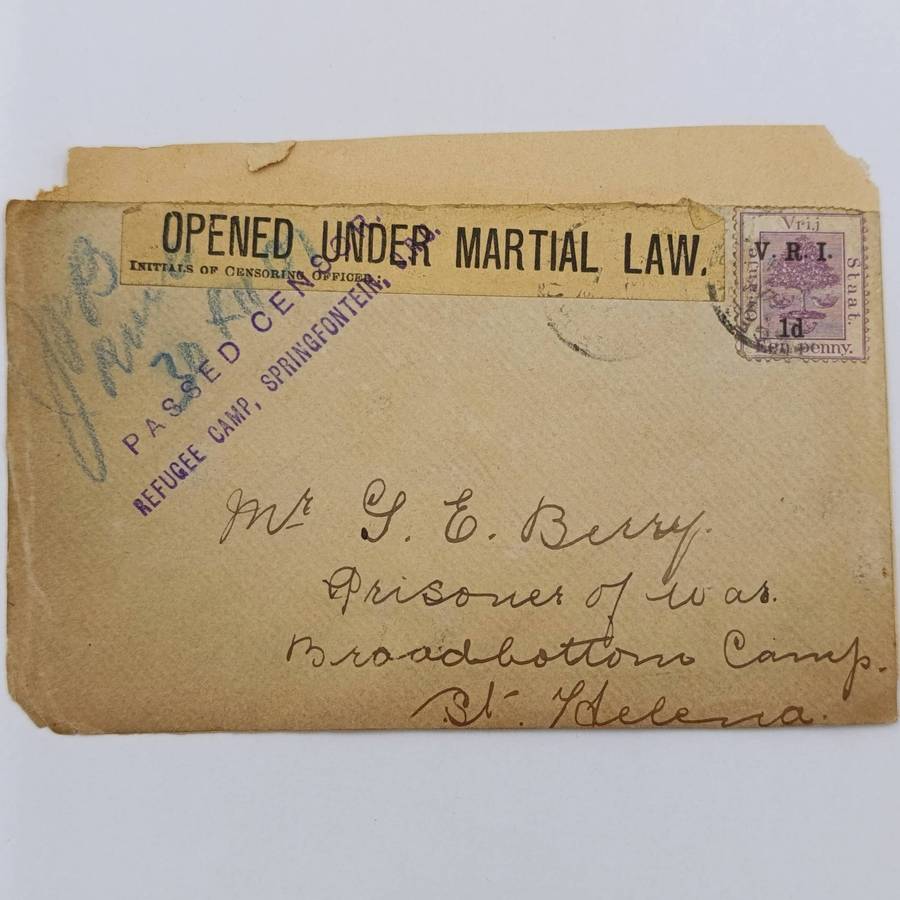 OPENED UNDER MARTIAL LAW.
INITIALS OF CENSORING OFFICER:
PASSED CENSOR.
REFUGEE CAMP, SPRINGFONTEIN,
30 XII
Vrij
Oranje
Staat.
V. R. I.
1d
Een penny.
Mr G. E. Berry.
Prisoner of war.
Broadbottom Camp.
St. Helena.